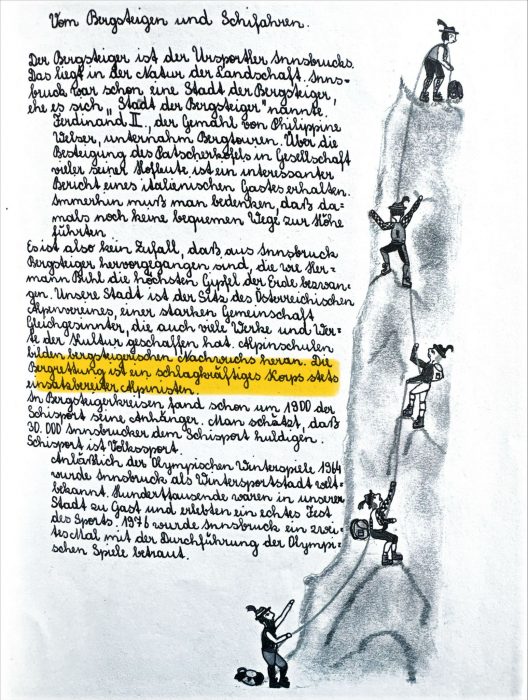 Vom Bergsteigen und Schifahren.
Der Bergsteiger ist der Ursportler Innsbrucks.
Das liegt in der Natur der Landschaft. Inns-
bruck war schon eine Stadt der Bergsteiger,
ehe es sich „Stadt der Bergsteiger" nannte.
Ferdinand II., der Gemahl von Philippine
Welser, unternahm Bergtouren. Über die
Besteigung des Patscherkofels in Gesellschaft
vieler seiner Hofleute ist ein interessanter
Bericht eines italienischen Gastes erhalten.
Immerhin muß man bedenken, daß da-
mals noch keine bequemen Wege zur Höhe
führten.
Es ist also kein Zufall, daß aus Innsbruck
Bergsteiger hervorgegangen sind, die wie Her-
mann Buhl die höchsten Gipfel der Erde bezwan-
gen. Unsere Stadt ist der Sitz des Österreichischen
Alpenvereines, einer starken Gemeinschaft
Gleichgesinnter, die auch viele Werke und Wer-
te der Kultur geschaffen hat. Alpinschulen
bilden bergsteigerischen Nachwuchs heran. Die
Bergrettung ist ein schlagkräftiges Korps stets
einsatzbereiter Alpinisten.
In Bergsteigerkreisen fand schon um 1900 der
Schisport seine Anhänger. Man schätzt, daß
30.000 Innsbrucker dem Schisport huldigen.
Schisport ist Volkssport.
Anläßlich der Olympischen Winterspiele 1964
wurde Innsbruck als Wintersportstadt welt-
bekannt. Hunderttausende waren in unserer
Stadt zu Gast und erlebten ein echtes Fest
des Sports. 1976 wurde Innsbruck ein zwei-
tes Mal mit der Durchführung der Olympi-
schen Spiele betraut.